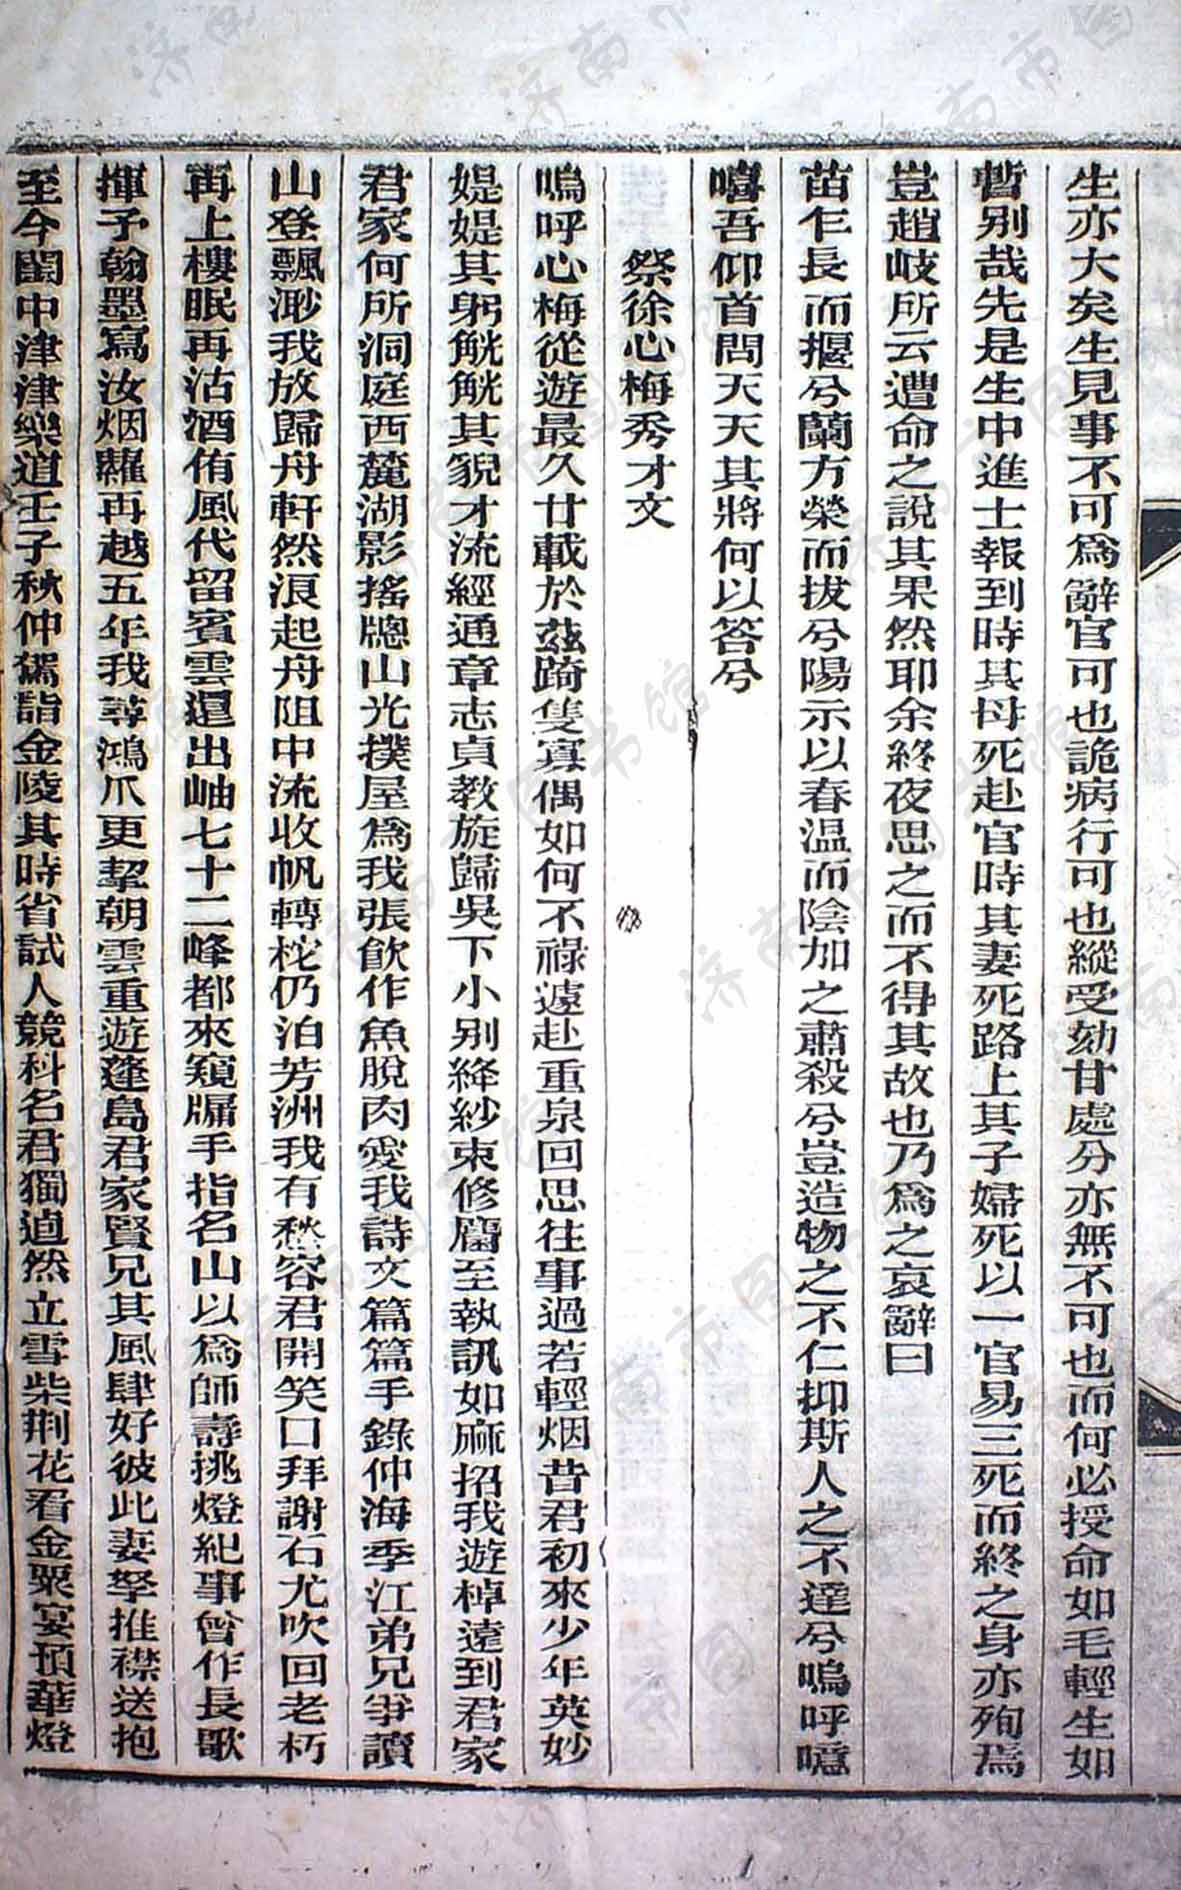 生亦大矣生見事不可為辭官可也詭病行可也縱受劾甘處分亦無不可也而何必授命如毛輕生如
暫別哉先是生中進士報到時其母死赴官時其妻死路上其子婦死以一官易三死而終之身亦殉焉
豈趙岐所云遭命之說其果然耶余終夜思之而不得其故也乃為之哀辭曰
苗乍長而揠兮蘭方榮而拔兮陽示以春溫而陰加之肅殺兮豈造物之不仁抑斯人之不達兮嗚呼噫
嘻吾仰首問天天其將何以答兮
祭徐心梅秀才文
嗚呼心梅從遊最久廿載於茲踦隻寡偶如何不祿遠赴重泉回思往事過若輕烟昔君初來少年英妙
媞媞其躬觥觥其貌才流經通章志貞教旋歸吳下小別絳紗束修屬至執訊如麻招我遊棹遠到君家
君家何所洞庭西麓湖影搖牕山光撲屋為我張飲作魚脫肉愛我詩文篇篇手錄仲海季江弟兄爭讀
山登飄渺我放歸舟軒然浪起舟阻中流收帆轉柁仍泊芳洲我有愁容君開笑口拜謝石尤吹回老朽
再上樓眠再沽酒侑風代留賓雲還出岫七十二峰都來窺牖手指名山以為師壽挑燈紀事曾作長歌
揮予翰墨寫汝烟蘿再越五年我尋鴻爪更挈朝雲重遊蓬島君家賢兄其風肆好彼此妻孥推襟送抱
至今閨中津津樂道壬子秋仲駕詣金陵其時省試人競科名君獨逌然立雪柴荆花看金粟宴預華燈